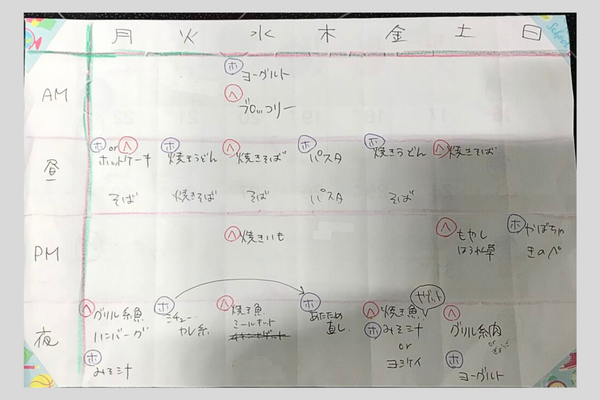 月 火 水 木 金 土 日
AM
ホ ヨーグルト
ヘ ブロッコリー
昼
ホ or ヘ ホットケーキ
そば
ホ 焼きうどん
焼きそば
ヘ 焼きそば
そば
ホ パスタ
パスタ
ホ 焼きうどん
そば
ヘ 焼きそば
PM
ヘ 焼きいも
ヘ もやし
ほうれん草
ホ かぼちゃ
きのぺ
夜
ヘ グリル魚
ハンバーグ
ホ みそ汁
ホ シチュー
カレー系
ヘ 焼き魚
ミールキット
ホ あたため
直し
ヘ 焼き魚
ホ みそ汁
or
ヨシケイ
ヘ グリル肉
or
ホ ヨーグルト